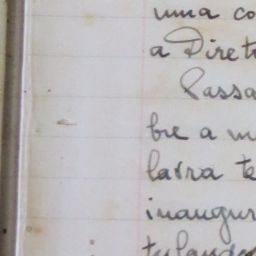 uma co
a Diret
Passa
bre a m
lavra te
inaugur
tulando